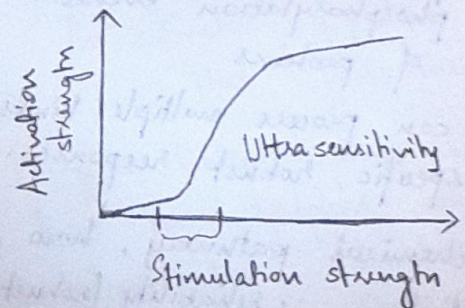 Activation
strength
Ultrasensitivity
Stimulation strength